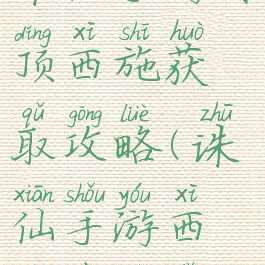 dǐng xī shī huò
顶西施获
qǔ gōng lüè zhū
取攻略(诛
xiān shǒu yóu xī
仙手游西